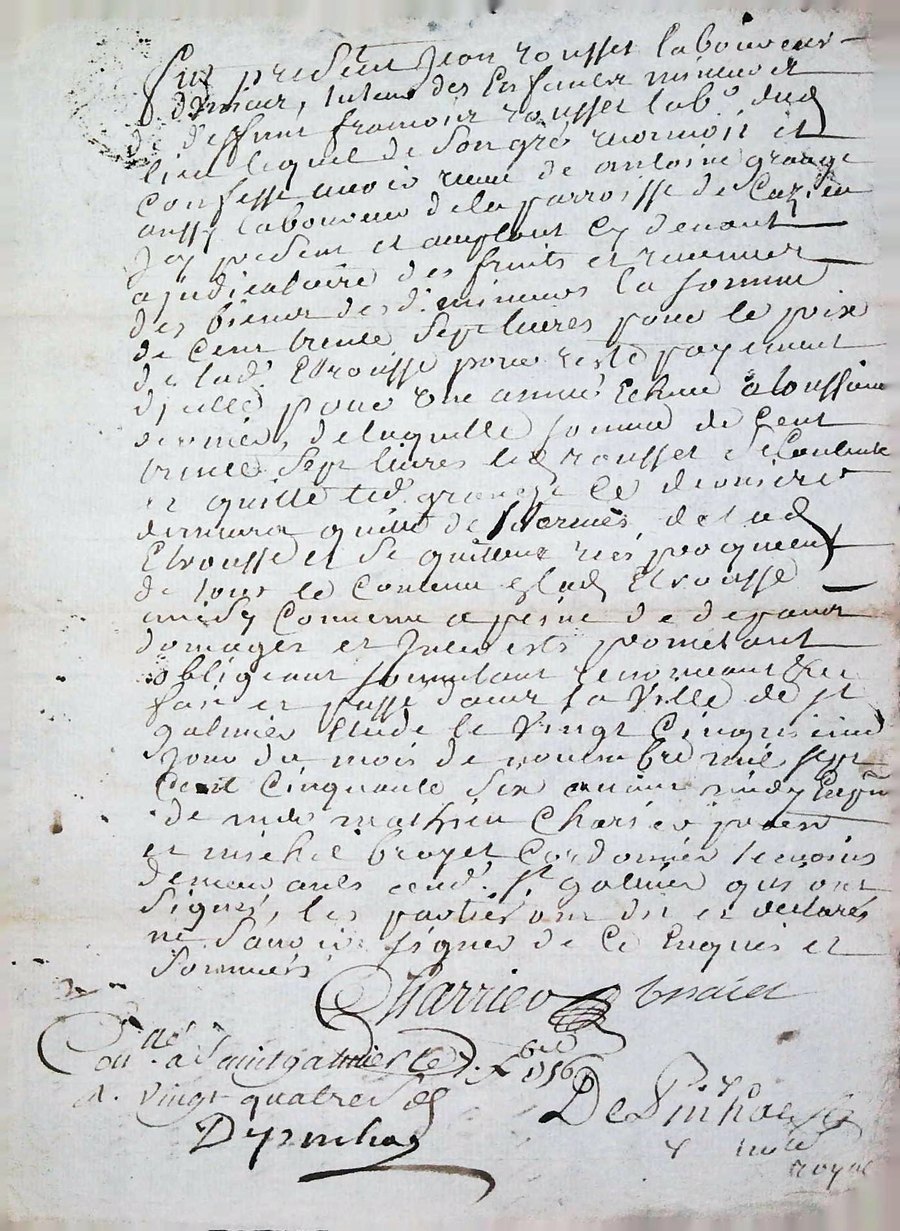 fut présent Jean rousset laboureur
tuteur des Enfants mineurs et
de deffunt francois rousset lab.r dud
lieu lequel de Son gré reconnoit et
confesse avoir receu de antoine grange
aussy laboureur de la parroisse de
Jcy present et acceptant Cy devant
ajudicataire des fruits et revenus
des biens desd. mineurs la somme
de Cent trente Sept livres pour le prix
de lad. pour reste payement
d'jcelle pour une année Echue a toussaint
dernier, de laquelle somme de Cent
trente Sept livres led rousset se Contente
et quitte led. grange Ce dernier
demeura quitte de de lad
et se quittent respecquement
de tout le Contenu en lad
a peine de de depans
domages et Interests prometant
obligeant soumetant renonceant &c
fait et passé dans la Ville de st
galmier Etude le Vingt Cinquieme
Jour du mois de novembre mil sept
Cent Cinquante Six avant midy En pnce
de mathieu Charié
et michel Cordonnier temoins
demeurants aud. st galmier qui ont
Signés, les parties ont dit et declarés
ne Savoir signer de Ce Enquis et
Sommés
Charrieu
Con.lé a Saint galmier le 7. xbre 1756
R. vingt quatre sols
Depinhac
De Pinhac
no.re
royal